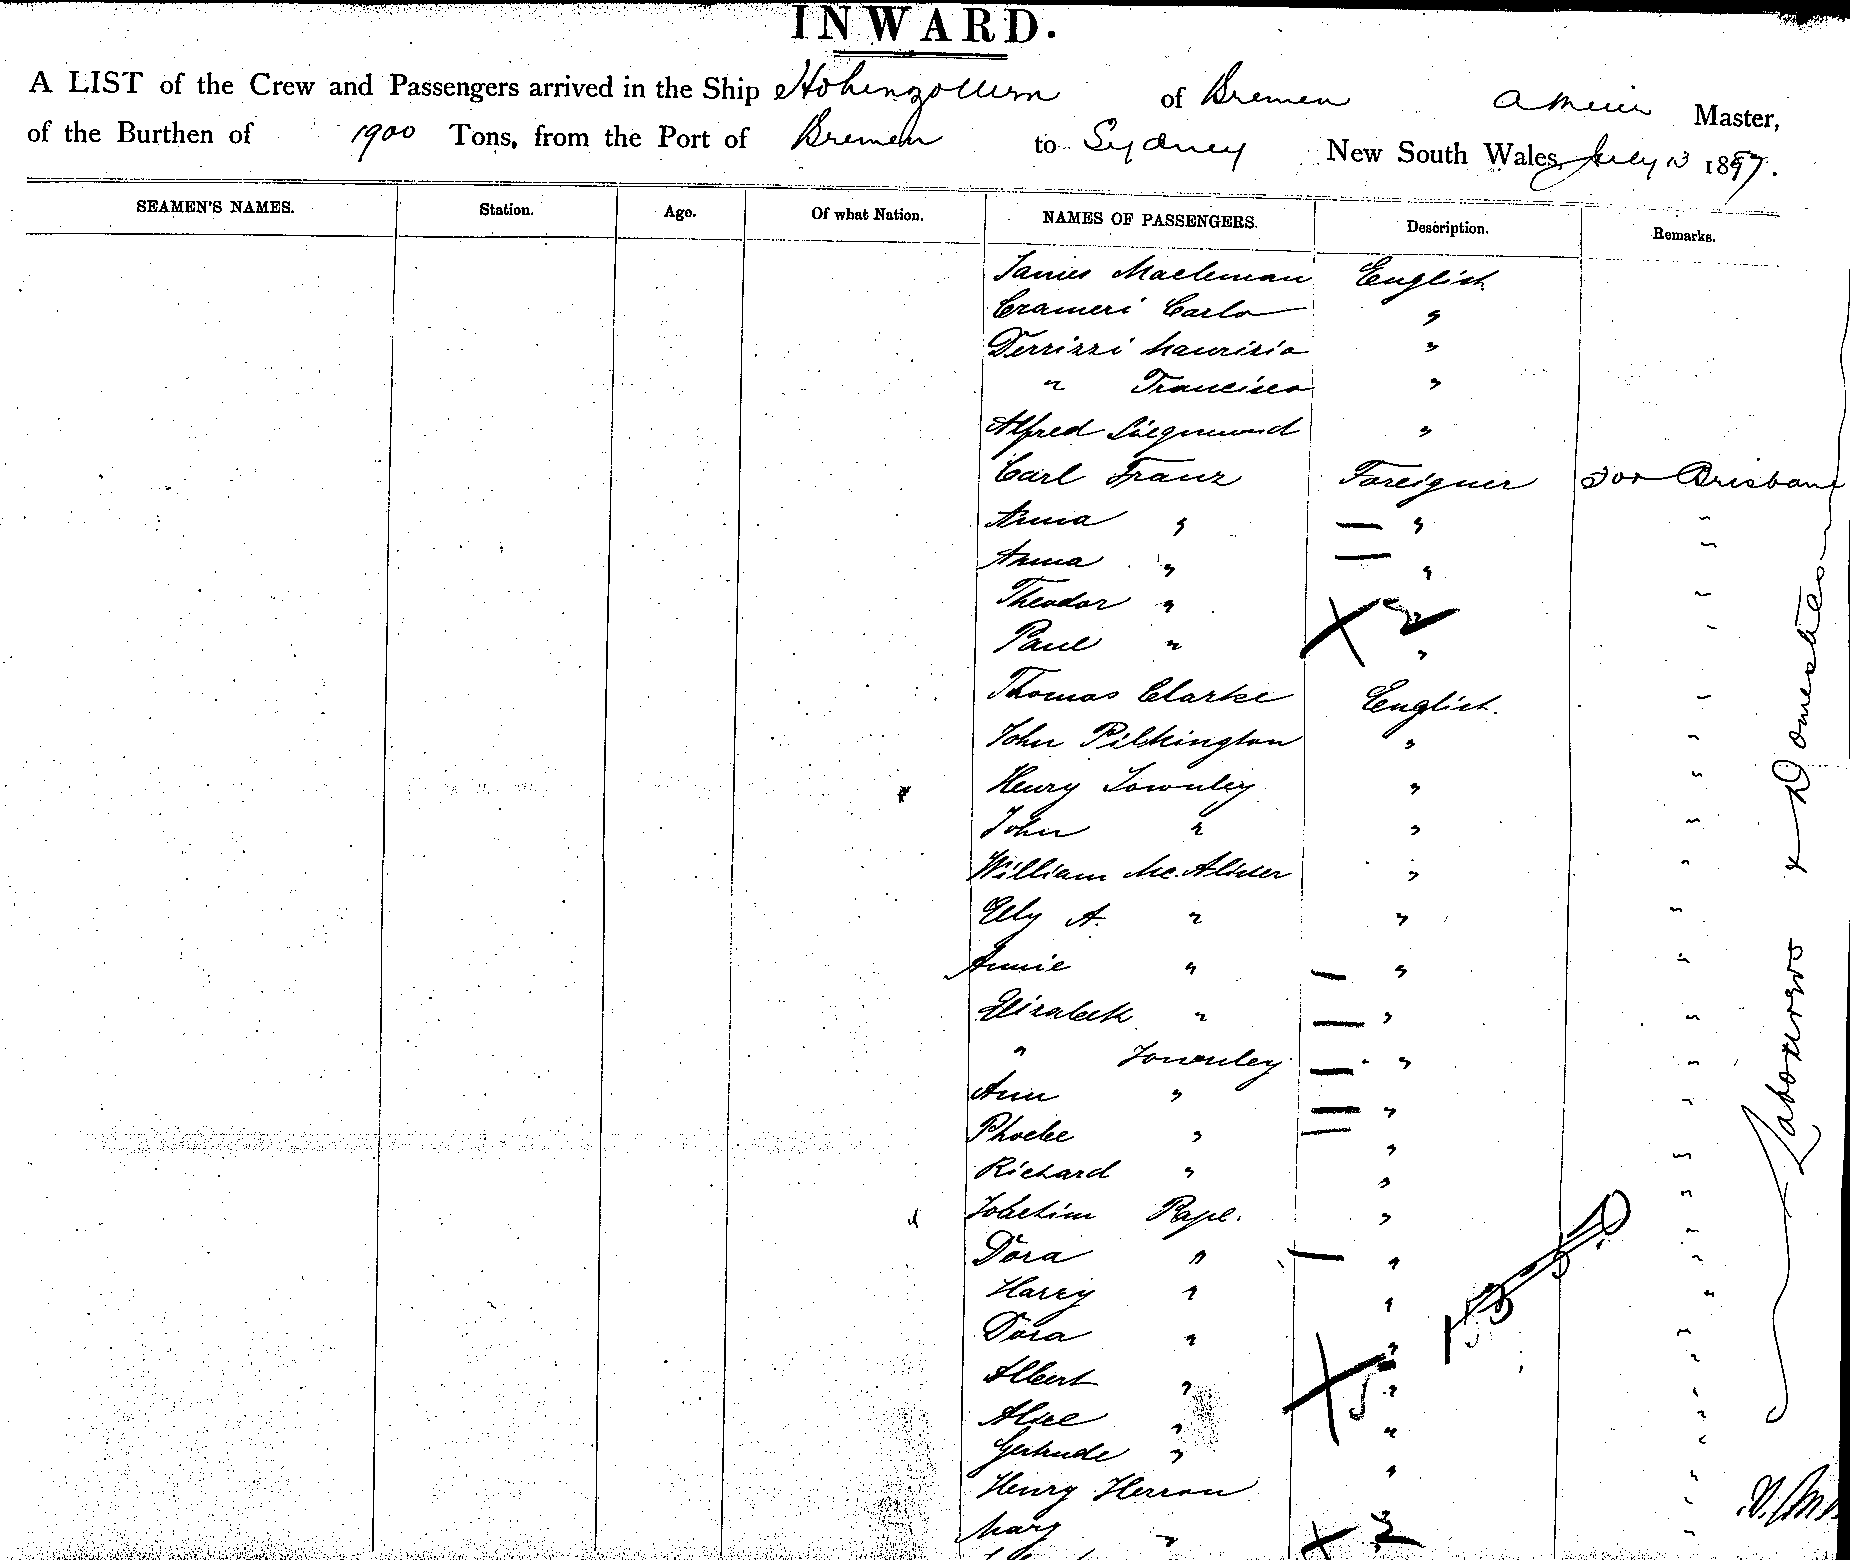 INWARD.
A LIST of the Crew and Passengers arrived in the Ship Hohenzollern of Bremen A Meier Master,
of the Burthen of 1900 Tons, from the Port of Bremen to Sydney New South Wales, July 13 1887.
SEAMEN'S NAMES. Station. Age. Of what Nation. NAMES OF PASSENGERS. Description. Remarks.
James English
Crameri Carlo "
Maurizio "
" Francisco "
Alfred Siegmund "
Carl Franz Foreigner for Brisbane
Anna " — " "
Anna " — " "
Theodor " " "
Paul " X 2 " "
Thomas Clarke English. "
John Pilkington " "
Henry Townley " "
John " " "
William Mc. Alister " "
Elly A. " " "
Annie " — " "
Elizabeth " — " "
" Townley — " "
Ann " — " "
Phoebe " — " "
Richard " " "
Joachim Pape. " "
Dora " — " "
Harry " " "
Dora " " "
Albert " X 5 " "
Alice " " "
Gertrude " " "
Henry Herron "
Mary " X 2 "
Labourers & Domestics